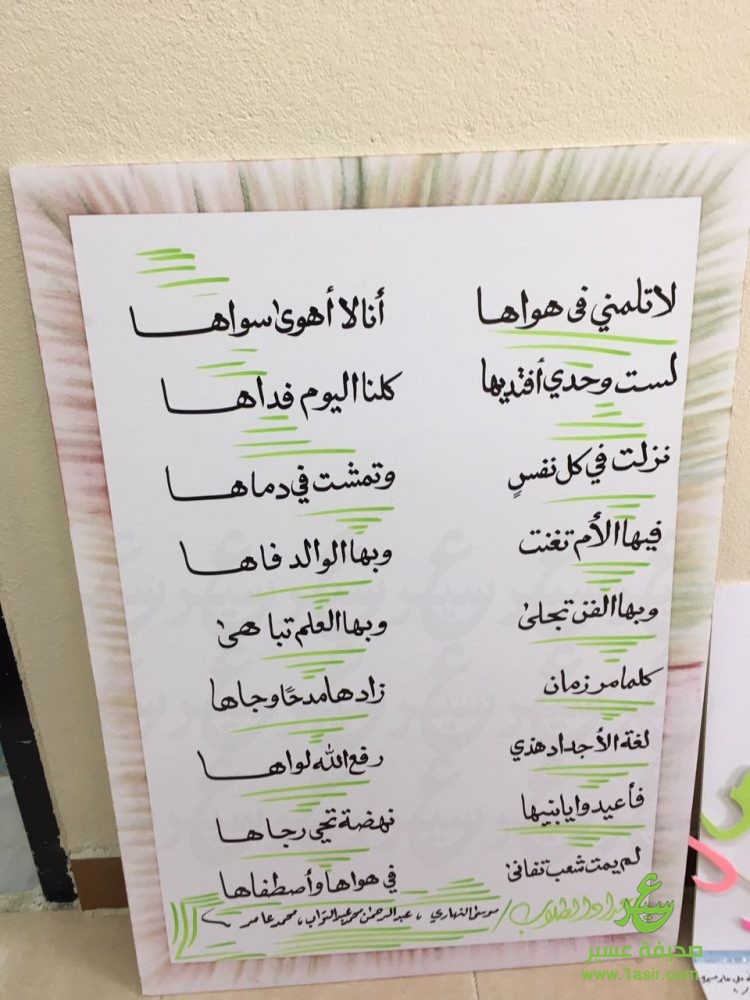 لا تلمني في هواها أنا لا أهوى سواها
لست وحدي أفتديها كلنا اليوم فداها
نزلت في كل نفسٍ وتمشت في دماها
فيها الأم تغنت وبها الوالد فاها
وبها الفن تجلى وبها العلم تباهى
كلما مر زمان زادها مدحًا وجاها
لغة الأجداد هذي رفع الله لواها
فأعيدوا يا بنيها نهضة تحي رجاها
لم يمت شعب تفانى في هواها وأصطفاها
إعداد الطلاب / موسى النهاري ، عبدالرحمن محمد عبدالتواب ، محمد عامر
عسير
صحيفة عسير
www.1asir.com